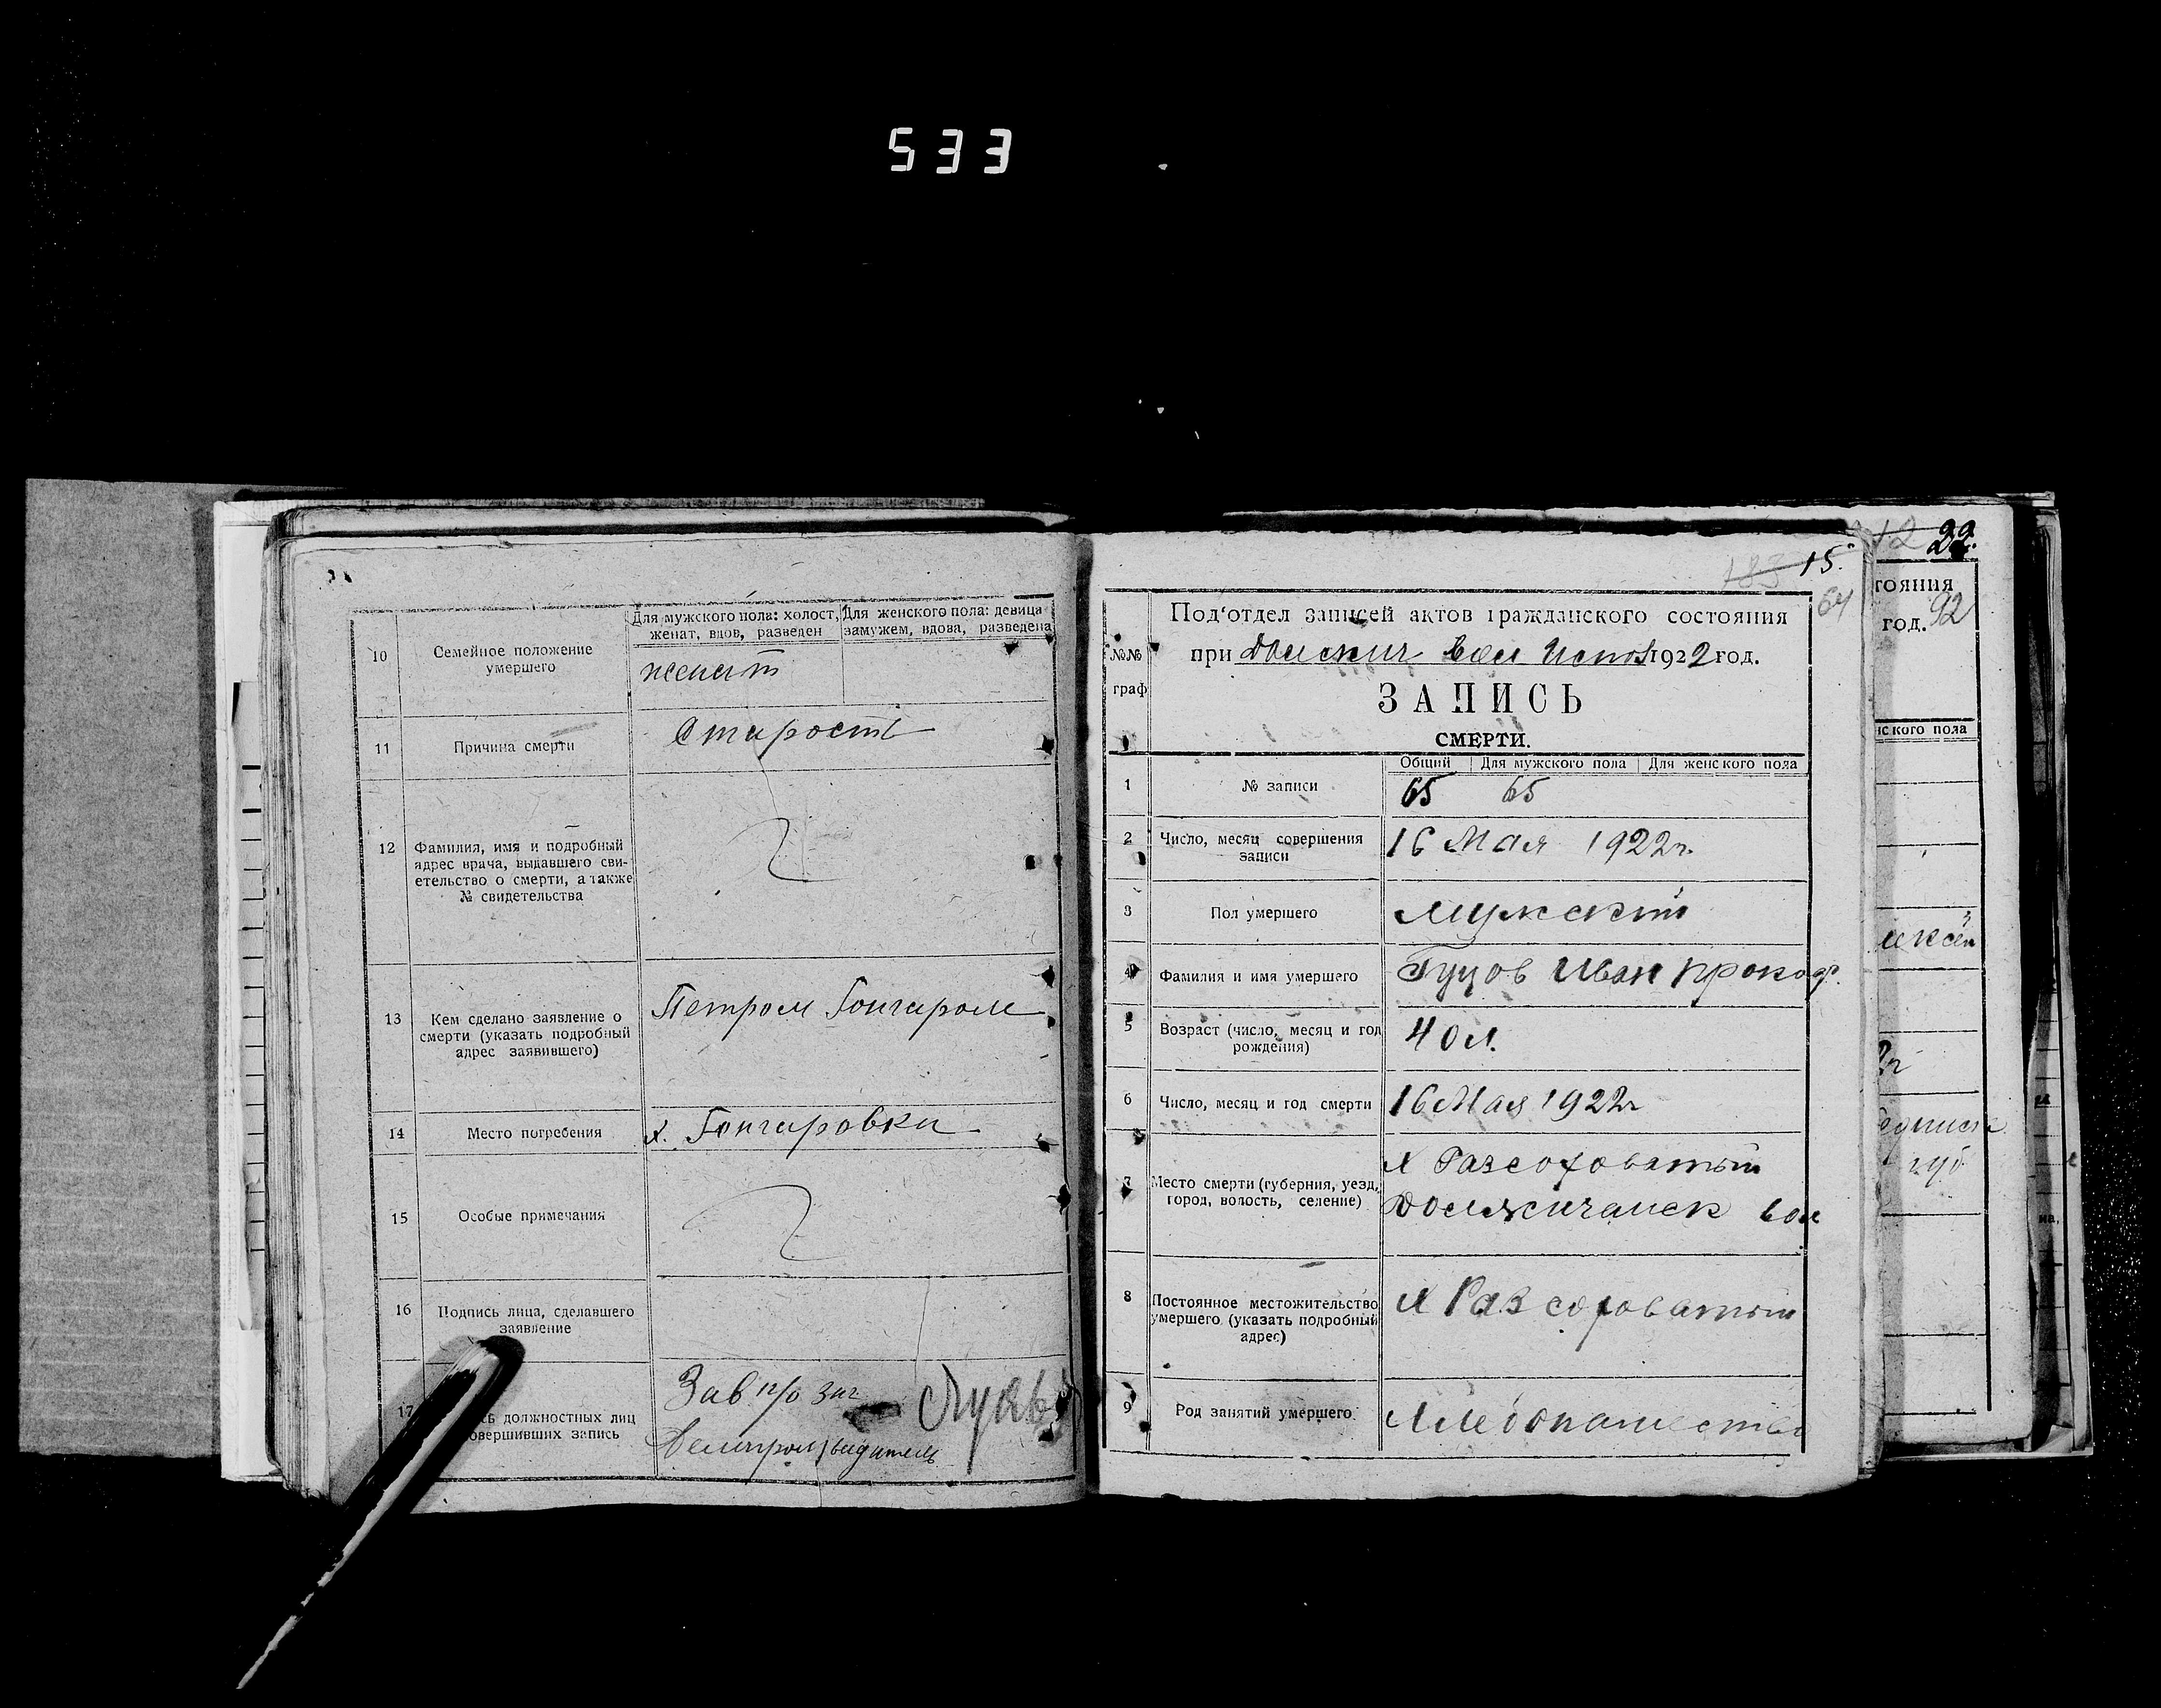 533
10
Семейное положение
умершего
Для мужского пола: холост,
женат, вдов, разведен
Для женского пола: девица
замужем, вдова, разведена
женат
11
Причина смерти
Старость
12
Фамилия, имя и подробный
адрес врача, выдавшего сви-
етельство о смерти, а также
№ свидетельства
13
Кем сделано заявление о
смерти (указать подробный
адрес заявившего)
Петром Гончаром
14
Место погребения
х. Гончаровка
15
Особые примечания
16
Подпись лица, сделавшего
заявление
17
сь должностных лиц
овершивших запись
Зав п/о заг
15.
183
64
№№
граф
Под'отдел записей актов гражданского состояния
при Вол Испол 1922 год.
ЗАПИСЬ
СМЕРТИ.
Общий Для мужского пола Для женского пола
1
№ записи
65 65
2
Число, месяц совершения
записи
16 Мая 1922 г.
3
Пол умершего
Мужской
4
Фамилия и имя умершего
Гуцов Иван Прокоф.
5
Возраст (число, месяц и год
рождения)
40 л.
6
Число, месяц и год смерти
16 Мая 1922 г
7
Место смерти (губерния, уезд,
город, волость, селение)
х Разсоховатый
Должичанск вол
8
Постоянное местожительство
умершего (указать подробный
адрес)
х Разсоховатый
9
Род занятий умершего
Хлебопашество
12 22.
тояния
год. 92
нского пола